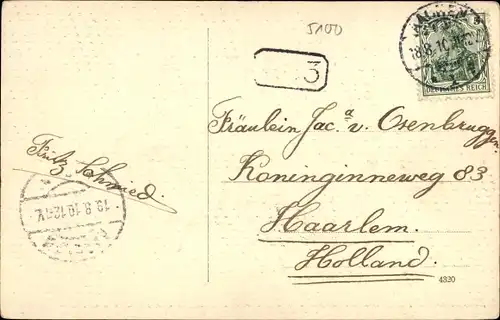 5100
AACHEN
18.8.10.
5
DEUTSCHES REICH
3
Fräulein Jac.a v. Osenbruggen
Koninginneweg 83
Haarlem.
Holland.
Fritz Schmied.
19.8.10.12
4320